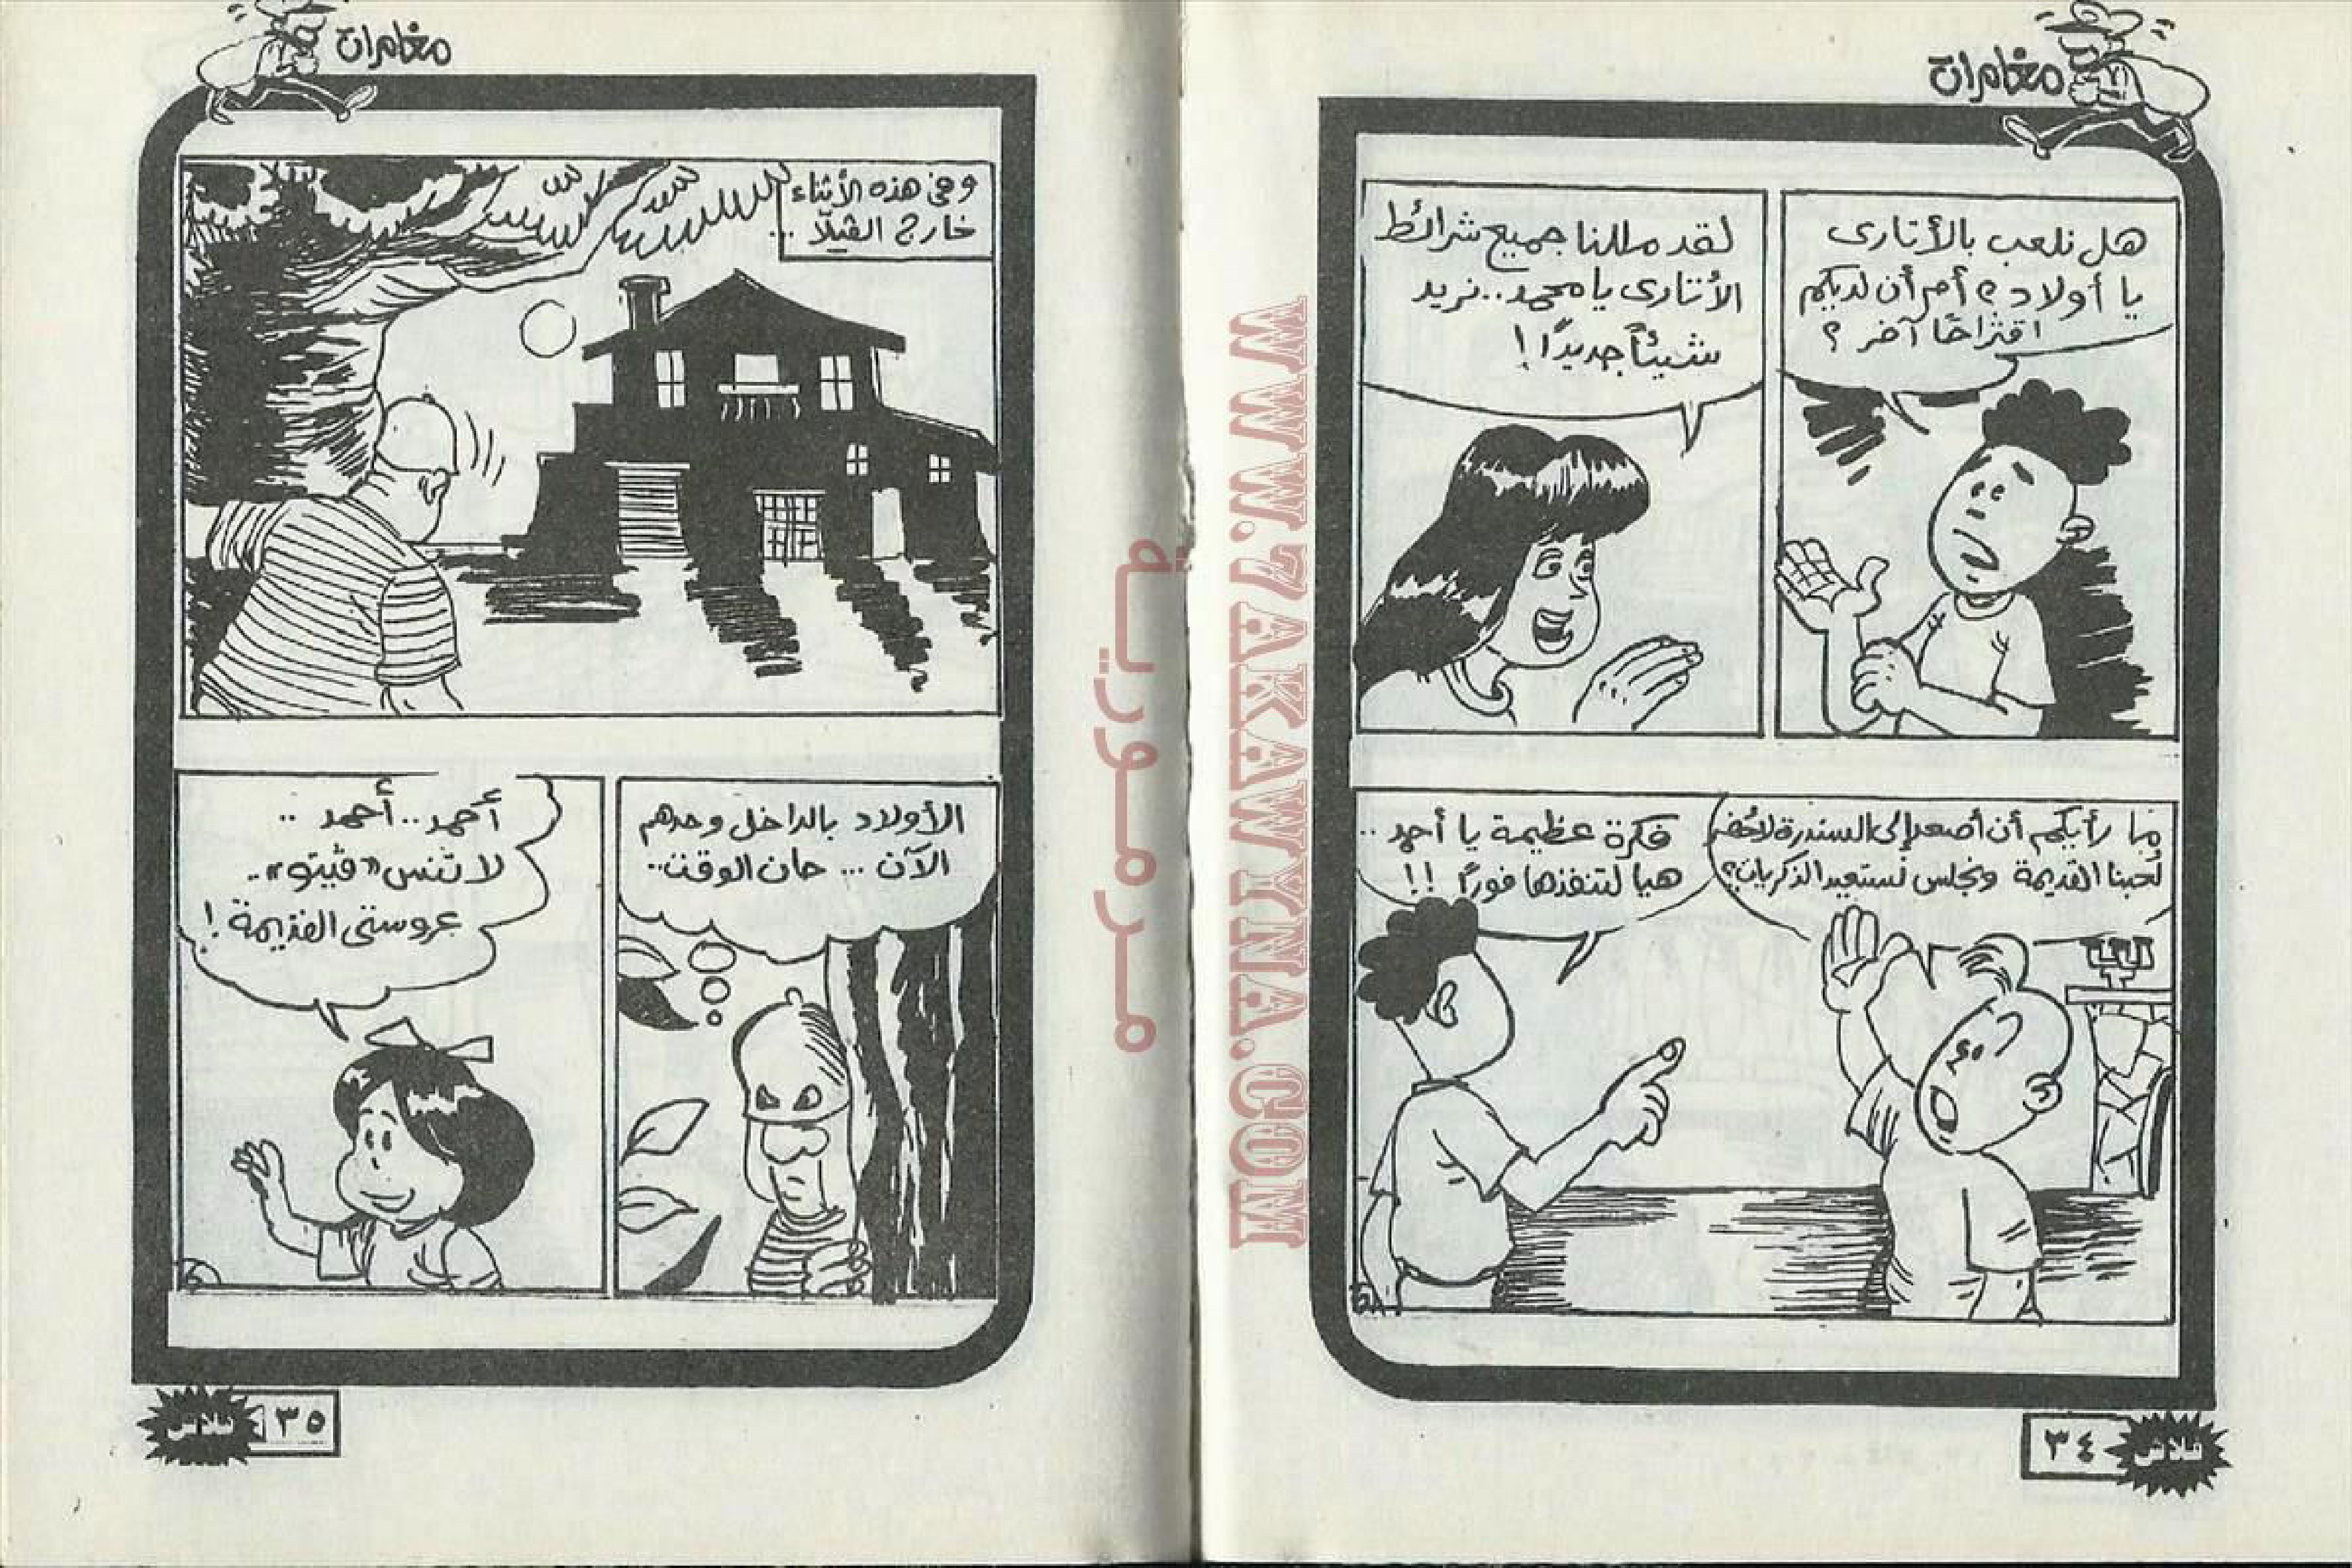 مغامرات
هل نلعب بالأتارى
يا أولاد ؟ أم أن لديكم
اقتراحًا آخر ؟
لقد مللنا جميع شرائط
الأتارى يا محمد .. نريد
شيئاً جديداً !
ما رأيكم أن أصعد إلى السندرة لأحضر
لعبنا القديمة ونجلس نستعيد الذكريات ؟
فكرة عظيمة يا أحمد ..
هيا لتنفذها فوراً !!
٣٤
فلاش
مغامرات
وفى هذه الأثناء
خارج الڤيلّا ...
الأولاد بالداخل وحدهم
الآن ... حان الوقت ..
أحمد .. أحمد ..
لا تنس «ڤيتو» ..
عروستى القديمة !
٣٥
فلاش
WWW.7AKAWYINA.COM
مرمورية